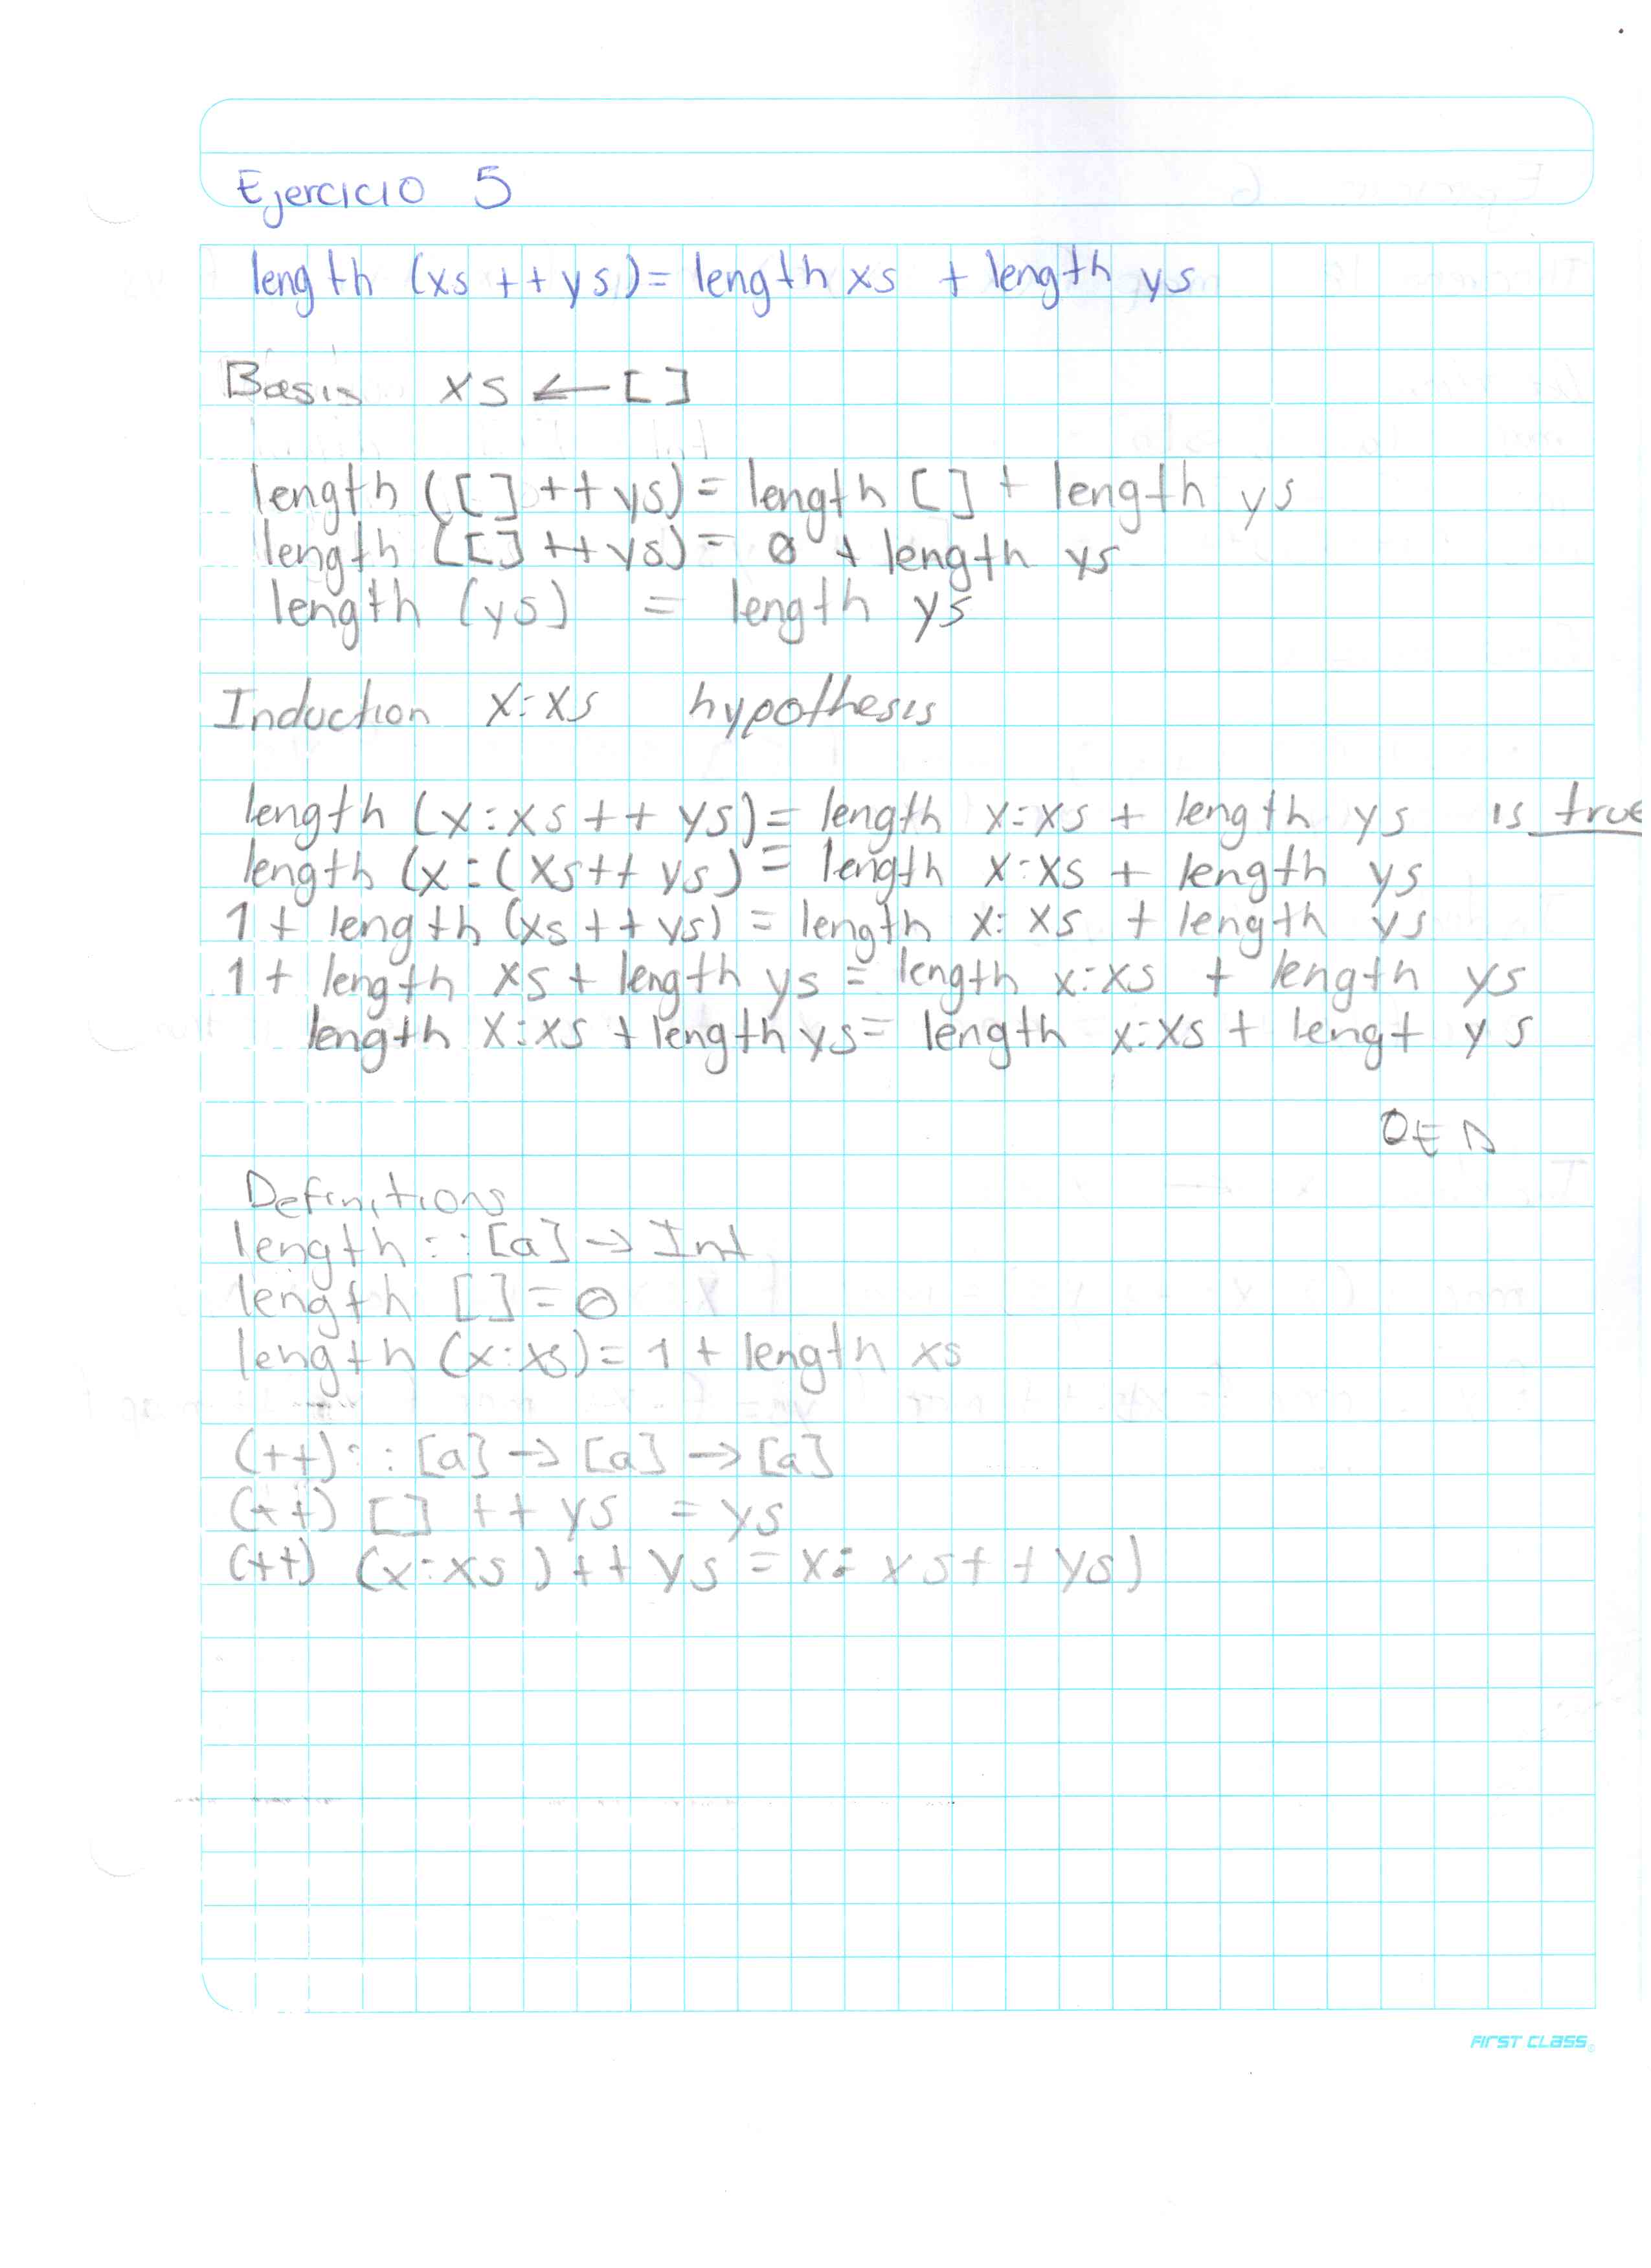 Ejercicio 5
length (xs ++ ys) = length xs + length ys
Basis xs ← []
length ([] ++ ys) = length [] + length ys
length ([] ++ ys) = 0 + length ys
length (ys) = length ys
Induction x:xs hypothesis
length (x:xs ++ ys) = length x:xs + length ys is true
length (x:(xs ++ ys) = length x:xs + length ys
1 + length (xs ++ ys) = length x:xs + length ys
1 + length xs + length ys = length x:xs + length ys
length x:xs + length ys = length x:xs + lengt ys
QED
Definitions
length :: [a] → Int
length [] = 0
length (x:xs) = 1 + length xs
(++) :: [a] → [a] → [a]
(++) [] ++ ys = ys
(++) (x:xs) ++ ys = x: xs ++ ys)
FIRST CLASS